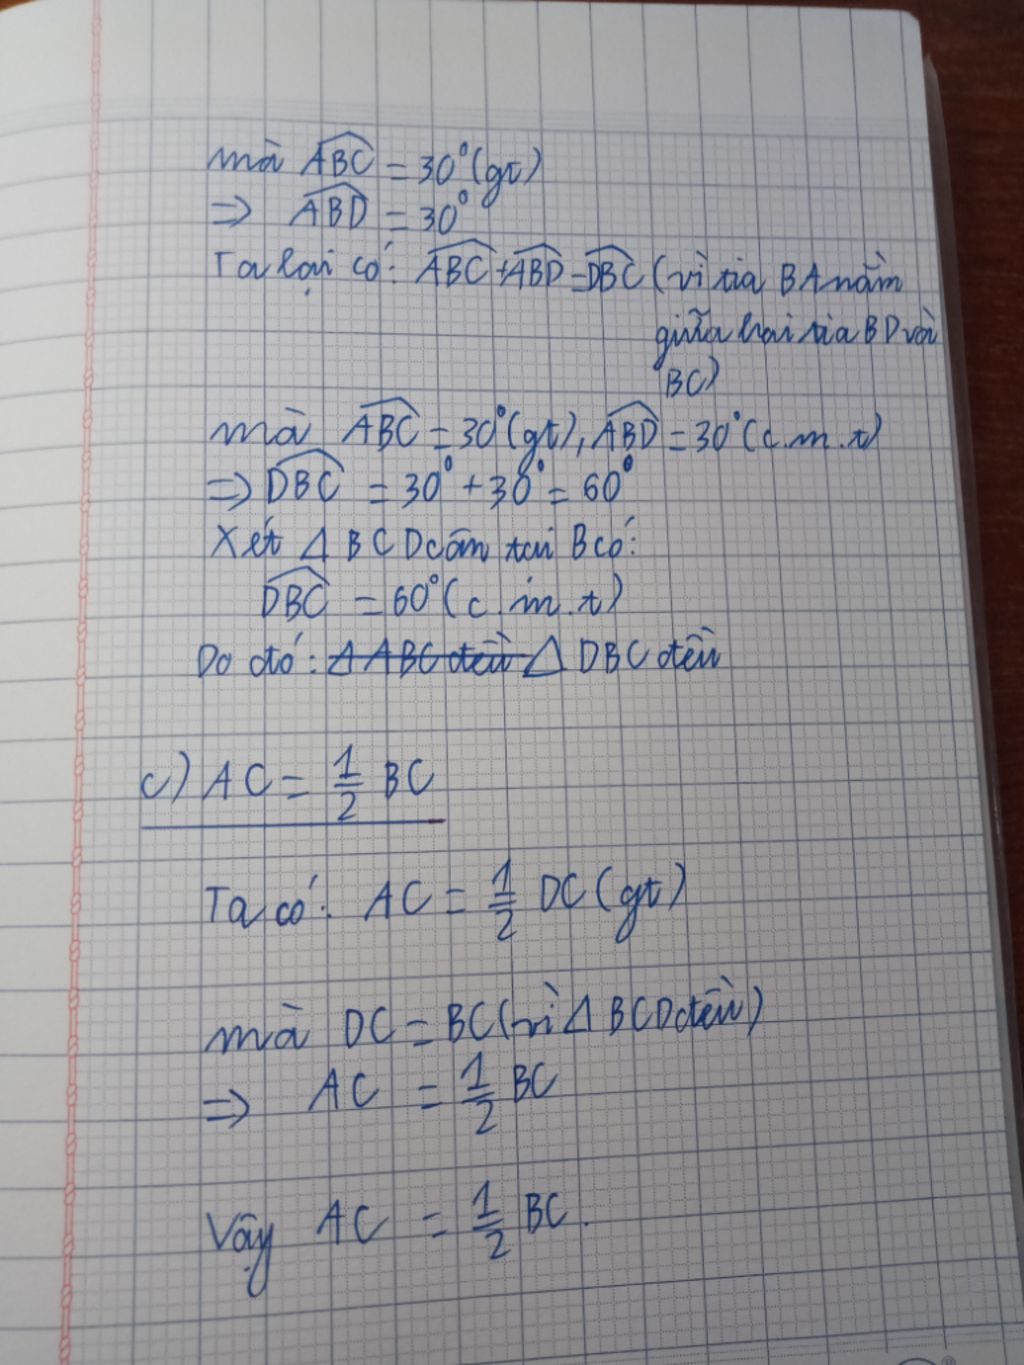 mà ABC = 30° (gt)
⇒ ABD = 30°
Ta lại có: ABC + ABD = DBC (vì tia BA nằm
giữa hai tia BD và
BC)
mà ABC = 30° (gt), ABD = 30° (c.m.t)
⇒ DBC = 30° + 30° = 60°
Xét Δ BCD cân tại B có:
DBC = 60° (c.m.t)
Do đó: Δ ABC đều Δ DBC đều
c) AC = 1/2 BC
Ta có: AC = 1/2 DC (gt)
mà DC = BC (vì Δ BCD đều)
⇒ AC = 1/2 BC
Vậy AC = 1/2 BC.